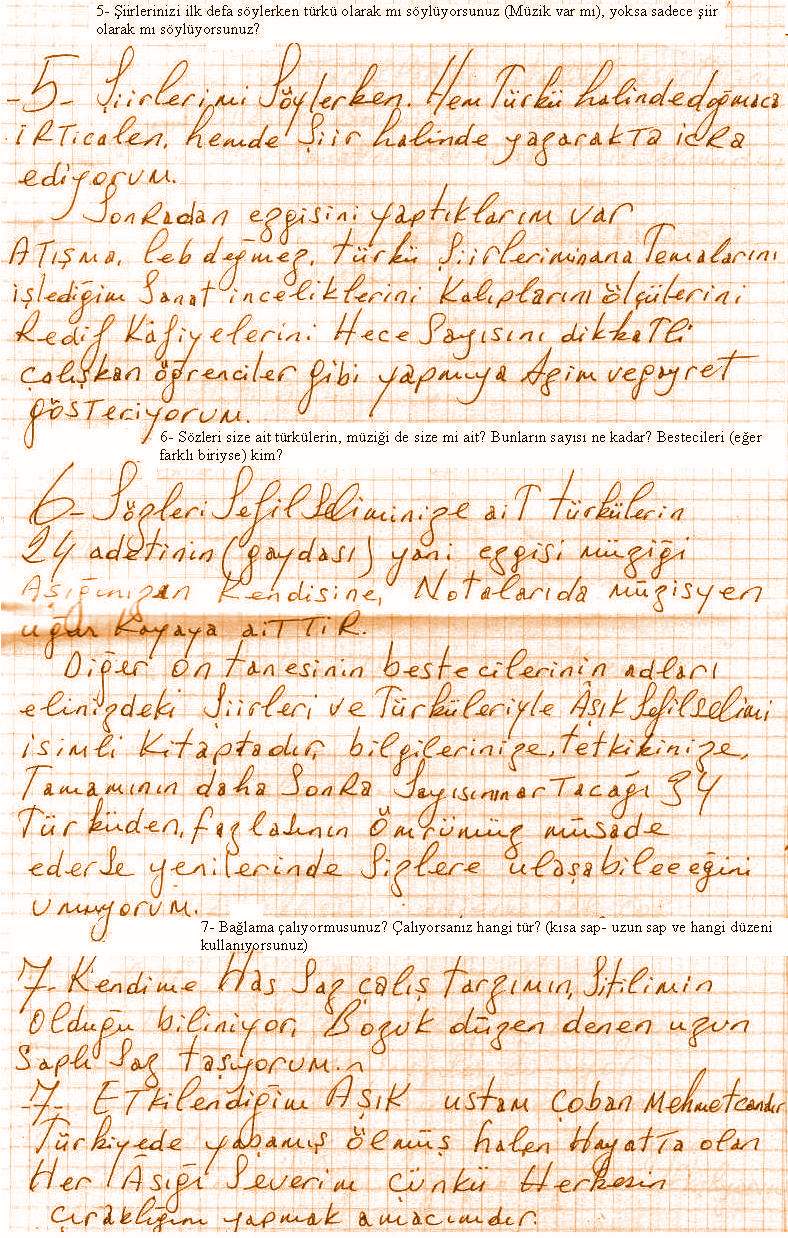 5- Şiirlerinizi ilk defa söylerken türkü olarak mı söylüyorsunuz (Müzik var mı), yoksa sadece şiir
olarak mı söylüyorsunuz?
-5- Şiirlerimi Söylerken. Hem Türkü halindedoğmaca
iRTicalen, hemde Şiir halinde yazarakTa icRa
ediyorum.
SonRadan ezgisini yaptıklarım var
ATışma, leb değmez, türkü Şiirleriminana Temalarını
işlediğim Sanat inceliklerini Kalıplarını ölçülerini
Redif Kafiyelerini Hece Sayısını dikkaTli
çalışkan öğrenciler gibi yapmıya Azim vegayret
gösTeriyorum.
6- Sözleri size ait türkülerin, müziği de size mi ait? Bunların sayısı ne kadar? Bestecileri (eğer
farklı biriyse) kim?
6- Sözleri Sefil Seliminize aiT türkülerin
24 adetinin (gaydası) yani ezgisi müziği
Aşığınızın Kendisine, Notalarıda müzisyen
uğur Kayaya aiTTiR.
Diğer on tanesinin bestecilerinin adları
elinizdeki Şiirleri ve Türküleriyle Âşık Sefilselimi
isimli Kitaptadır, bilgilerinize, tetkikinize,
Tamamının daha SonRa Sayısınınar Tacağı 34
Türküden, fazlasının Ömrümüz müsade
ederse yenilerinde Sizlere ulaşabileceğini
Umuyorum.
7- Bağlama çalıyormusunuz? Çalıyorsanız hangi tür? (kısa sap- uzun sap ve hangi düzeni
kullanıyorsunuz)
7- Kendime Has Saz çalış Tarzımın, Sitilimin
Olduğu biliniyor, Bozuk düzen denen uzun
Saplı Saz taşıyorum.
-7- ETkilendiğim AŞIK ustam Çoban Mehmetcandır
Türkiyede yaşamış ölmüş halen HayatTa olan
Her Âşığı Severim çünkü Herkesin
çıraklığını yapmak amacımdır.